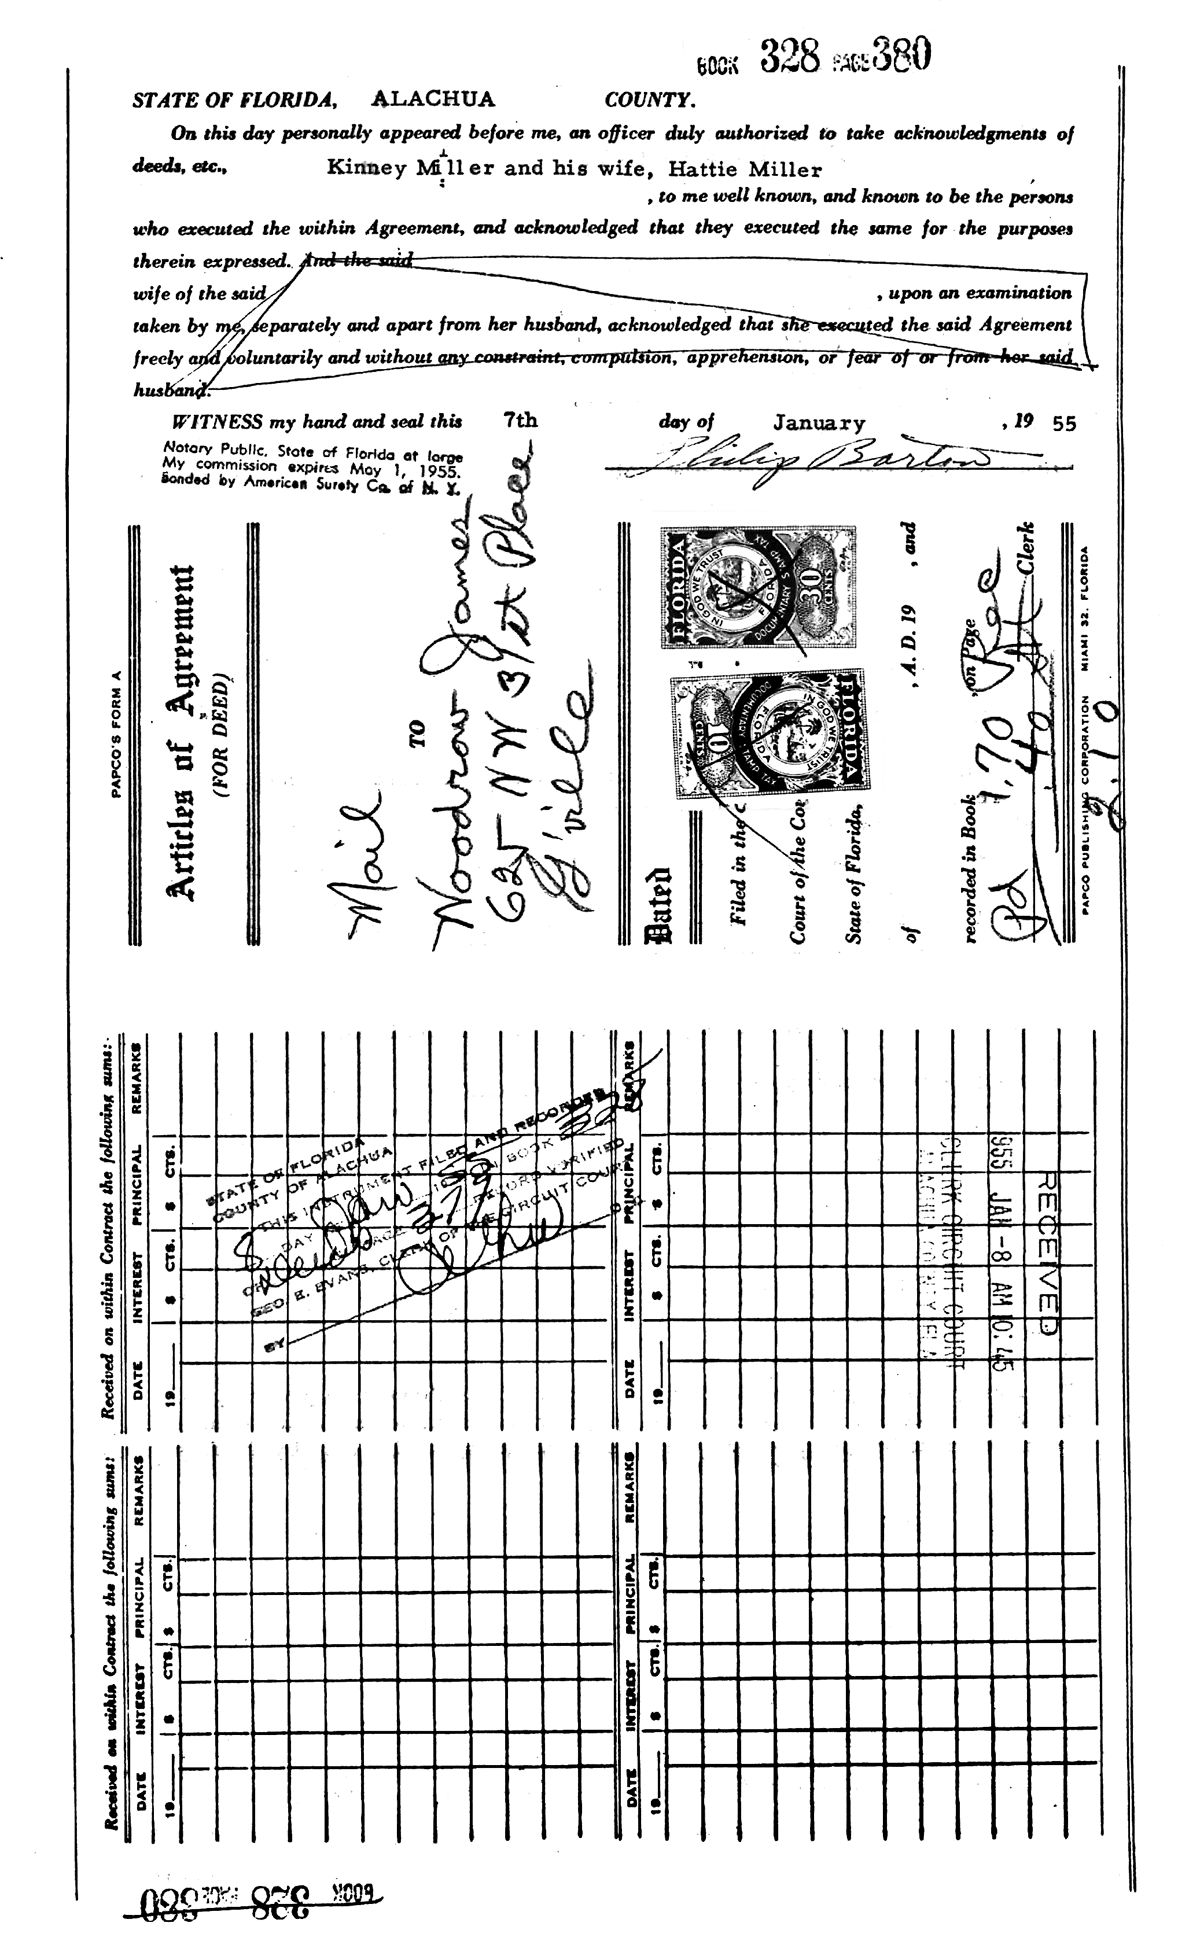 BOOK 328 PAGE 380
STATE OF FLORIDA, ALACHUA COUNTY.
On this day personally appeared before me, an officer duly authorized to take acknowledgments of
deeds, etc., Kinney Miller and his wife, Hattie Miller
, to me well known, and known to be the persons
who executed the within Agreement, and acknowledged that they executed the same for the purposes
therein expressed. And the said
wife of the said , upon an examination
taken by me, separately and apart from her husband, acknowledged that she executed the said Agreement
freely and voluntarily and without any constraint, compulsion, apprehension, or fear of or from her said
husband.
WITNESS my hand and seal this 7th day of January , 19 55
Notary Public, State of Florida at large
My commission expires May 1, 1955.
Bonded by American Surety Co. of N. Y.
Philip Barton
PAPCO'S FORM A
Articles of Agreement
(FOR DEED)
Mail
TO
Woodrow James
625 NW 31st Place
G'ville
Dated
Filed in the C
Court of the Cou
State of Florida,
of , A. D. 19 , and
recorded in Book 1.70 , on Page Rec
Pd 40 Clerk
2.10
PAPCO PUBLISHING CORPORATION MIAMI 32, FLORIDA
FLORIDA
IN GOD WE TRUST
FLORIDA
DOCUMENTARY STAMP TAX
30 CENTS
FLORIDA
IN GOD WE TRUST
FLORIDA
DOCUMENTARY STAMP TAX
10 CENTS
Received on within Contract the following sums:
DATE INTEREST PRINCIPAL REMARKS
19 $ CTS. $ CTS.
STATE OF FLORIDA
COUNTY OF ALACHUA
THIS INSTRUMENT FILED AND RECORDED
8 DAY Jan 55 IN BOOK 328
PAGE 378 RECORD VERIFIED
GEO. E. EVANS, CLERK OF THE CIRCUIT COURT
BY
DATE INTEREST PRINCIPAL REMARKS
19 $ CTS. $ CTS.
RECEIVED
955 JAN -8 AM 10:45
CLERK CIRCUIT COURT
ALACHUA COUNTY FLA
Received on within Contract the following sums:
DATE INTEREST PRINCIPAL REMARKS
19 $ CTS. $ CTS.
DATE INTEREST PRINCIPAL REMARKS
19 $ CTS. $ CTS.
BOOK 328 PAGE 380